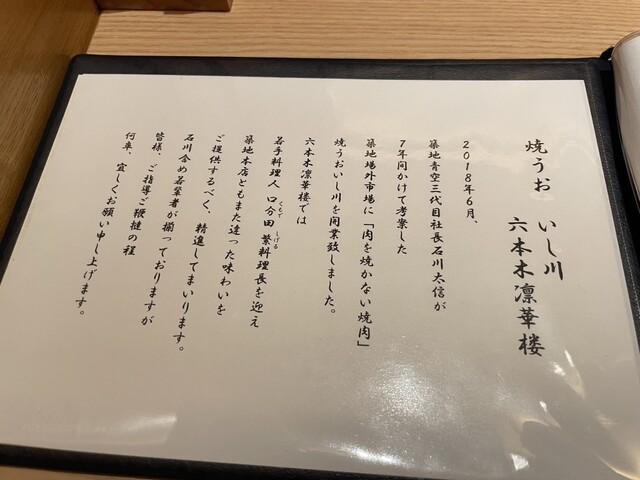 焼うお いし川
六本木凛華楼
2018年6月、
築地青空三代目社長石川太信が
7年間かけて考案した
築地場外市場に「肉を焼かない焼肉」
焼うおいし川を開業致しました。
六本木凛華楼では
若手料理人 口分田 繁料理長を迎え
くもで しげる
築地本店ともまた違った味わいを
ご提供するべく、精進してまいります。
石川含め若輩者が揃っておりますが
皆様、ご指導ご鞭撻の程
何卒、宜しくお願い申し上げます。